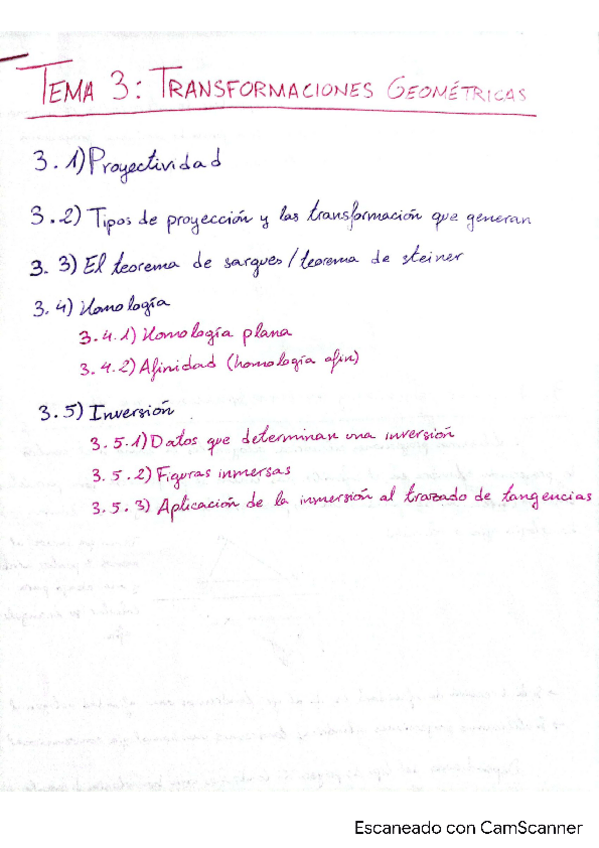 TEMA 3: TRANSFORMACIONES GEOMÉTRICAS
3.1) Proyectividad
3.2) Tipos de proyección y las transformación que generan
3.3) El teorema de sargues/teorema de steiner
3.4) Homología
3.4.1) Homología plana
3.4.2) Afinidad (homología afin)
3.5) Inversión
3.5.1) Datos que determinan una inversión
3.5.2) Figuras inmersas
3.5.3) Aplicación de la inmersión al trazado de tangencias
Escaneado con CamScanner